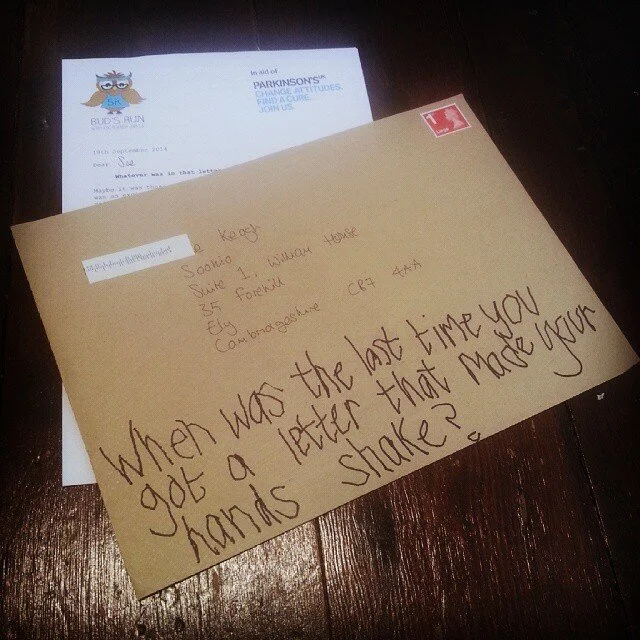 5K
BUD'S RUN
In aid of
PARKINSON'S UK
CHANGE ATTITUDES.
FIND A CURE.
JOIN US.
18th September 2014
Dear Sue
Whatever was in that letter
Maybe it was
1
Large
Sookio
Suite 1, William House
35 Forehill
Ely
Cambridgeshire CB7 4AA
When was the last time you
got a letter that made your
hands shake?